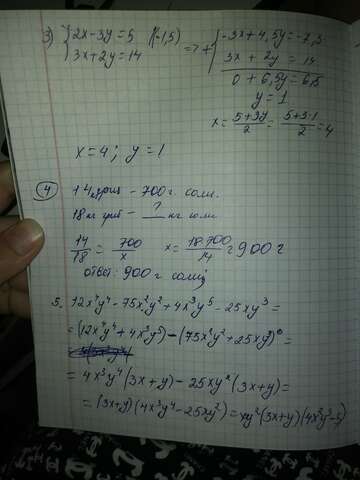 3) { 2x-3y=5 |(-1,5)
3x+2y=14
=> + { -3x+4,5y=-7,5
3x + 2y = 14
0 + 6,5y = 6,5
y = 1
x = (5+3y)/2 = (5+3·1)/2 = 4
x=4; y=1
4 14 - 700 г. соли.
18 кг гриб - ? кг соли
14/18 = 700/x x = 18·700/14 = 900 г
ответ: 900 г соли
5. 12x⁴y⁴ - 75x²y² + 4x³y⁵ - 25xy³ =
= (12x⁴y⁴ + 4x³y⁵) - (75x²y² + 25xy³) =
= 4x³y⁴(3x+y) - 25xy²(3x+y) =
= (3x+y)(4x³y⁴ - 25xy²) = xy²(3x+y)(4x²y²-5)